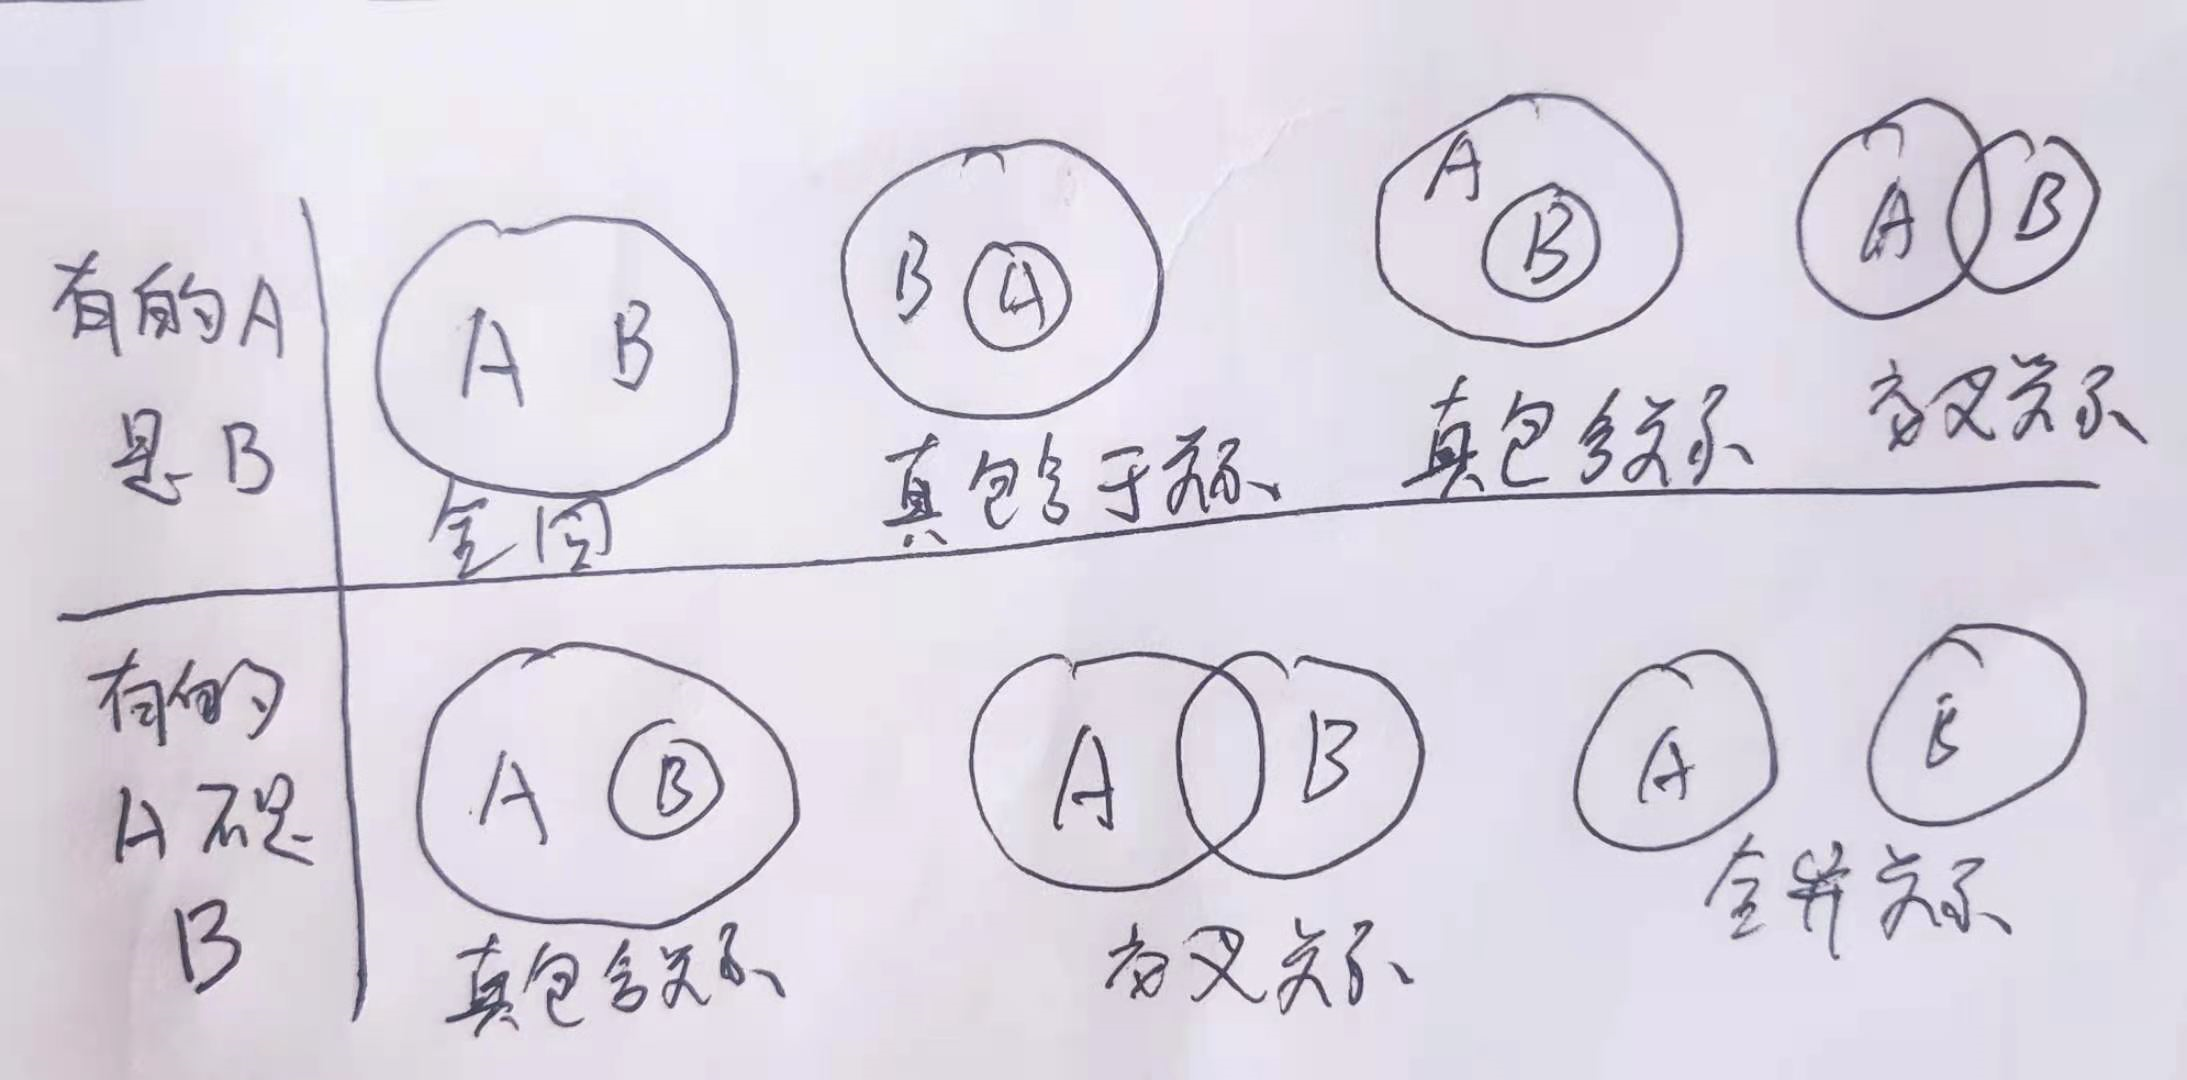 有的A
是B
A B
全同
B A
真包含于关系
A B
真包含关系
A B
交叉关系
有的
A不是
B
A B
真包含关系
A B
交叉关系
A B
全异关系